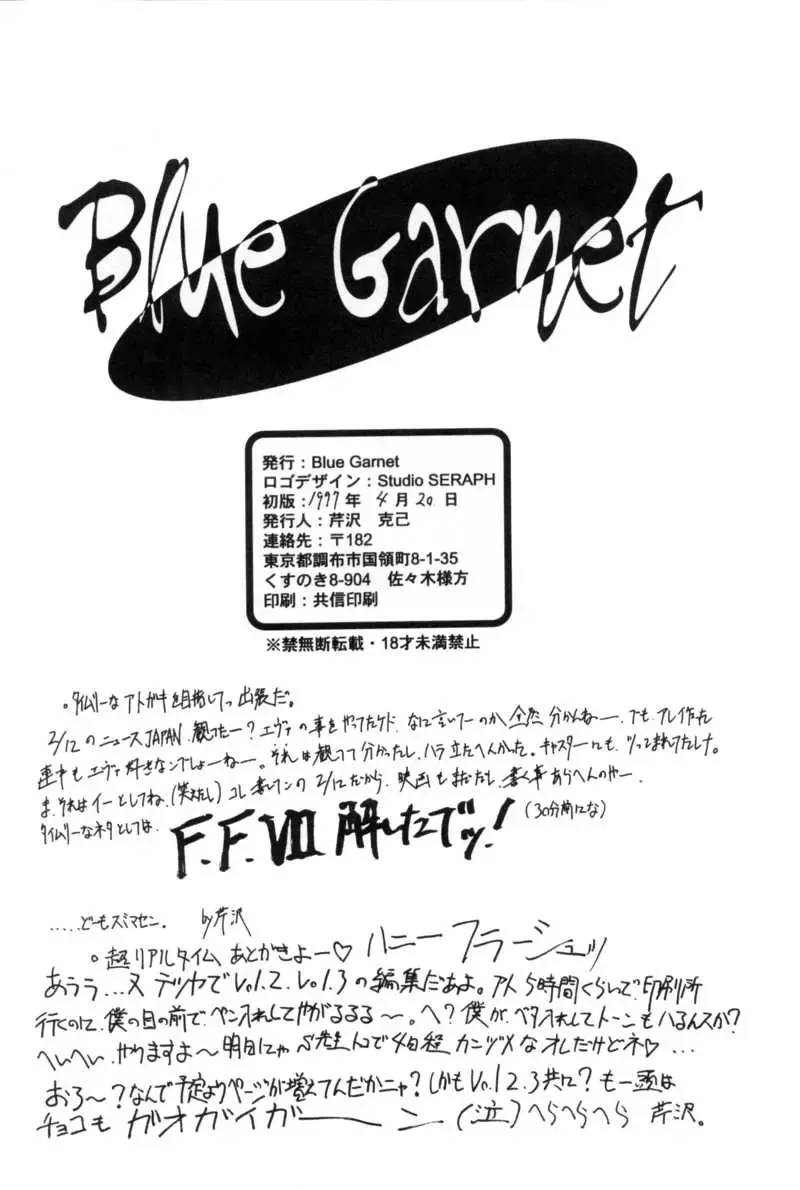 Blue Garnet
発行：Blue Garnet
ロゴデザイン：Studio SERAPH
初版：1997年 4月20日
発行人：芹沢 克己
連絡先：〒182
東京都調布市国領町8-1-35
くすのき8-904 佐々木様方
印刷：共信印刷
※禁無断転載・18才未満禁止
。タイムリーなアトガキを目指してっ出発だ。
2/12のニュースJAPAN、観たー？エヴァの事をやってたケド、なに言いてーのか全然分かんねー、でも、アレ作った
連中もエヴァ好きなんでしょーねー。それは観てて分かったし、ハラ立たへんかった。キャスターにも、ツッこまれてたしナ。
ま、それはイーとしてね、(笑)コレ書いてンの2/12だから、映画もまだだし、書く事あらへんのやー。
タイムリーなネタとしては、
F.F.VII 解いたでッ！(30分前にな)
.....どーもスミマセン。 by芹沢
。超リアルタイム、あとがきよー♡ ハニーフラーシュッ
あうう...ヌ デツヤでVol.2.Vol.3の編集だあよ。アト5時間くらいで印刷所
行くのに、僕の目の前で、ペン入れしてやがるるる〜。へ？僕が、ベタ入れしてトーンもハるんスか？
へいへい、やりますよ〜明日にゃS先生んコで4日程カンヅメなオレだけどネ♡...
おろ〜？なんで予定よりページが増えてんだかニャ？しかもVol.2.3共に？も一頭は
チョコも ガオガイガーーン (泣)へらへらへら 芹沢。